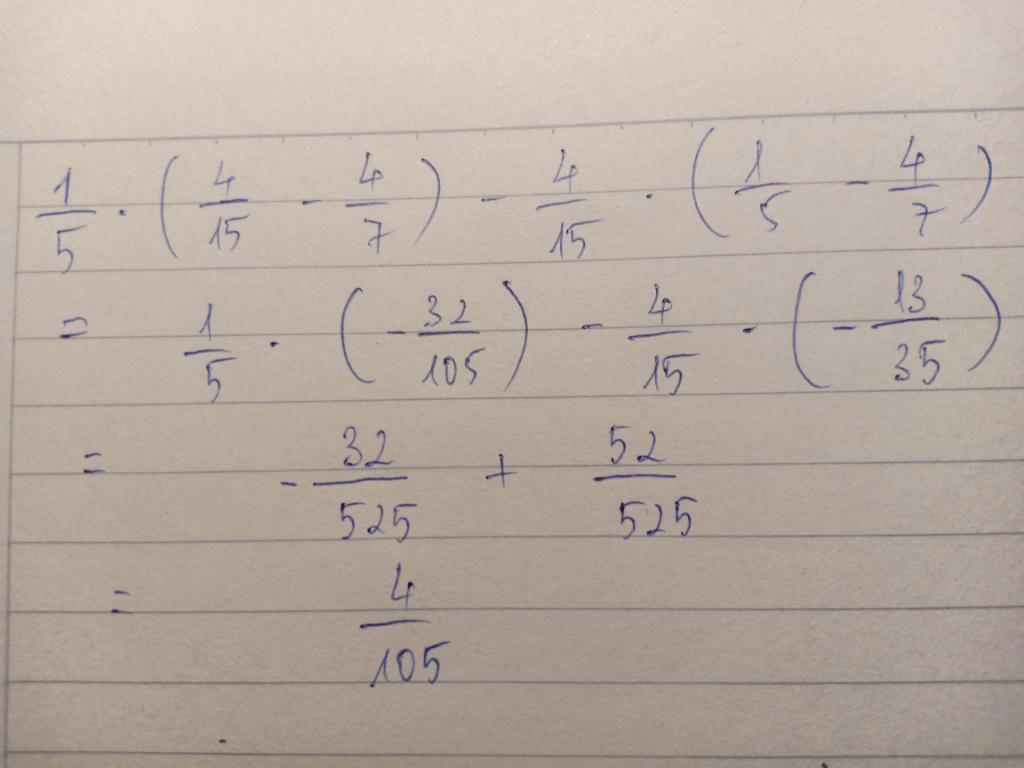 1/5 · (4/15 - 4/7) - 4/15 · (1/5 - 4/7)
= 1/5 · (-32/105) - 4/15 · (-13/35)
= -32/525 + 52/525
= 4/105